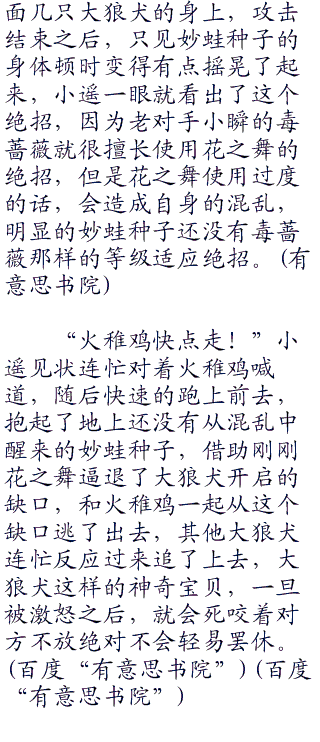 面几只大狼犬的身上，攻击
结束之后，只见妙蛙种子的
身体顿时变得有点摇晃了起
来，小遥一眼就看出了这个
绝招，因为老对手小瞬的毒
蔷薇就很擅长使用花之舞的
绝招，但是花之舞使用过度
的话，会造成自身的混乱，
明显的妙蛙种子还没有毒蔷
薇那样的等级适应绝招。(有
意思书院)
“火稚鸡快点走！”小
遥见状连忙对着火稚鸡喊
道，随后快速的跑上前去，
抱起了地上还没有从混乱中
醒来的妙蛙种子，借助刚刚
花之舞逼退了大狼犬开启的
缺口，和火稚鸡一起从这个
缺口逃了出去，其他大狼犬
连忙反应过来追了上去，大
狼犬这样的神奇宝贝，一旦
被激怒之后，就会死咬着对
方不放绝对不会轻易罢休。
(百度“有意思书院”)(百度
“有意思书院”)